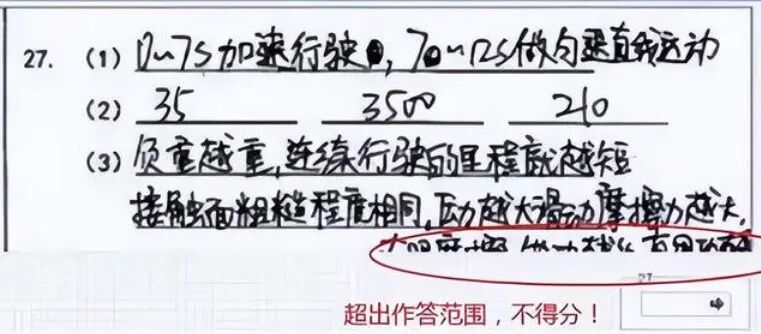 27. (1) 0~7s加速行驶, 7~12s做匀速直线运动
(2) 35 3500 210
(3) 负重越重,连续行驶的里程就越短
接触面粗糙程度相同,压力越大滑动摩擦力越大,
27
超出作答范围，不得分！